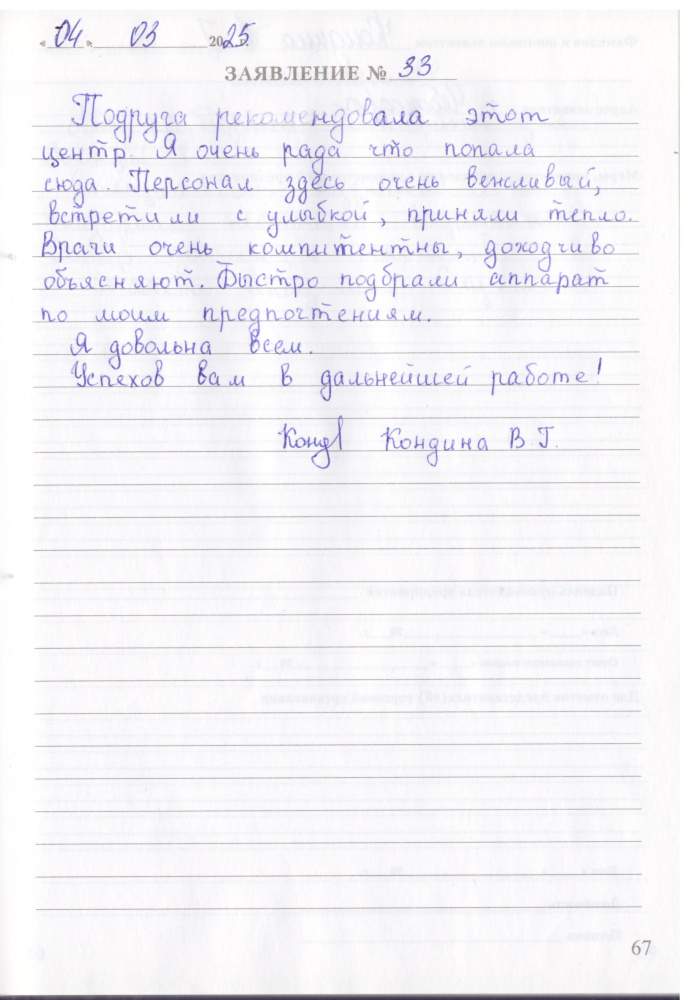 «04» 03 2025.
ЗАЯВЛЕНИЕ № 33
Подруга рекомендовала этот
центр. Я очень рада что попала
сюда. Персонал здесь очень вежливый,
встретили с улыбкой, приняли тепло.
Врачи очень компитентны, доходчиво
объясняют. Быстро подбрали аппарат
по моим предпочтениям.
Я довольна всем.
Успехов вам в дальнейшей работе!
Кондина В Г.
67